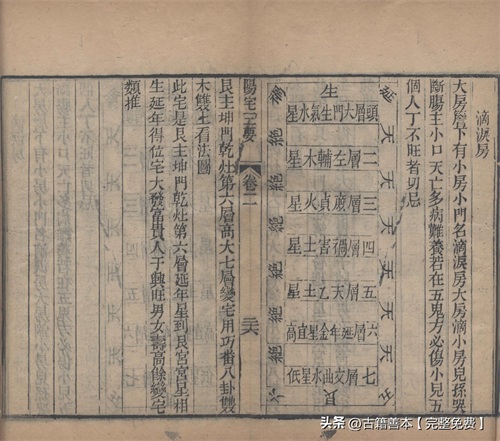 滴淚房
大房簷下有小房小門名滴淚房大房滴小房兒孫哭
斷腸主小口夭亡多病難養若在五鬼方必傷小兒五
個人丁不旺者切忌
延 生 禍
頭層大門生氣水星
二層左輔木星
三層廉貞火星
四層禍害土星
五層天乙土星
六層延年金星宜高
七層文曲水星低
天 天 天 天 天 天
絕 絕 絕 絕 絕 絕
艮
陽宅三要 卷二 二六
艮主坤門乾灶第六層高大七層變宅用巧番八卦雙
木雙土看法圖
此宅是艮主坤門乾灶第六層延年星到艮宮宮星相
生延年得位宅大發富貴人丁興旺男女壽高餘變宅
類推
头条 @古籍善本【完整免费】